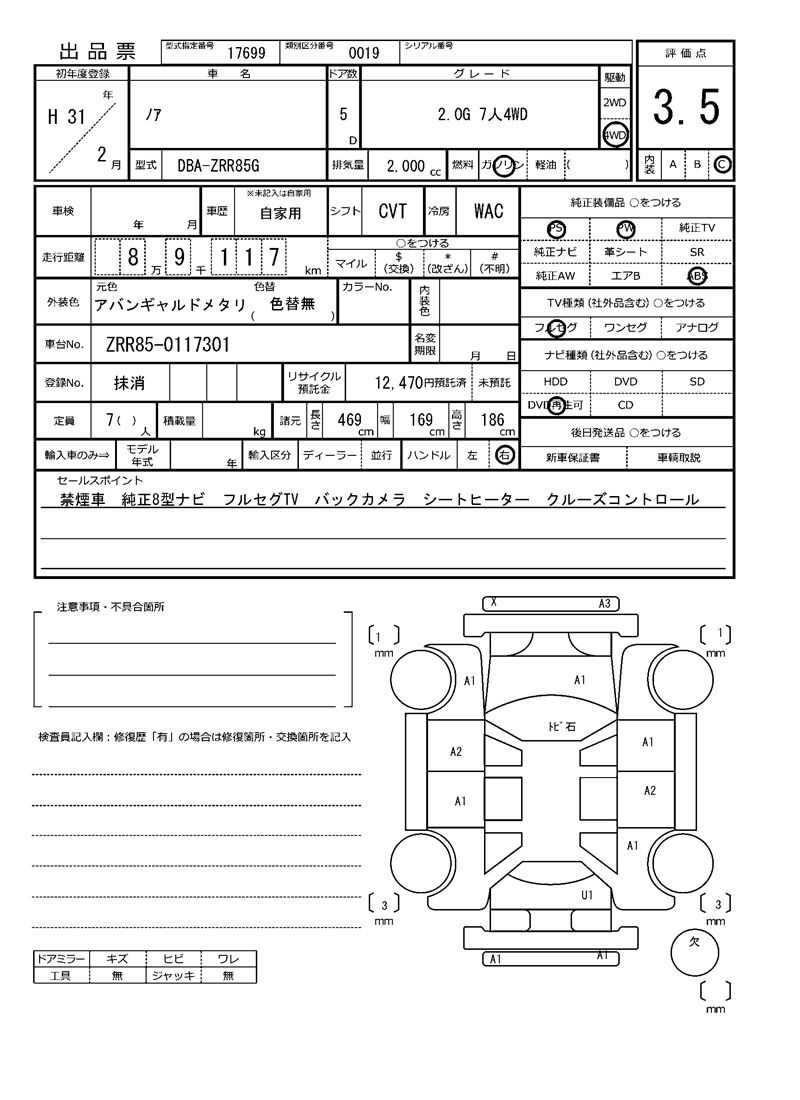 出品票 型式指定番号 17699 類別区分番号 0019 シリアル番号
評価点
3.5
内装 A B C
初年度登録 車名 ドア数 グレード 駆動
H 31 年 2 月 ﾉｱ 5 D 2.0G 7人4WD 2WD 4WD
型式 DBA-ZRR85G 排気量 2.000 cc 燃料 ガソリン 軽油 ( )
車検 年 月 車歴 ※未記入は自家用 自家用 シフト CVT 冷房 WAC
走行距離 8 万 9 千 1 1 7 km ○をつける
マイル $(交換) *(改ざん) #(不明)
外装色 元色 アバンギャルドメタリ 色替 ( 色替無 ) カラーNo. 内装色
車台No. ZRR85-0117301 名変期限 月 日
登録No. 抹消 リサイクル預託金 12,470円預託済 未預託
定員 7( )人 積載量 kg 諸元 長さ 469 cm 幅 169 cm 高さ 186 cm
輸入車のみ⇒ モデル年式 年 輸入区分 ディーラー 並行 ハンドル 左 右
純正装備品 ○をつける
PS PW 純正TV
純正ナビ 革シート SR
純正AW エアB ABS
TV種類(社外品含む)○をつける
フルセグ ワンセグ アナログ
ナビ種類(社外品含む)○をつける
HDD DVD SD
DVD再生可 CD
後日発送品 ○をつける
新車保証書 車輌取説
セールスポイント
禁煙車 純正8型ナビ フルセグTV バックカメラ シートヒーター クルーズコントロール
注意事項・不具合箇所
検査員記入欄：修復歴「有」の場合は修復箇所・交換箇所を記入
ドアミラー キズ ヒビ ワレ
工具 無 ジャッキ 無
X A3
1 mm
1 mm
A1 A1
ﾄﾋﾞ石
A2 A1
A1 A2
A1
U1
3 mm
3 mm
A1 A1
欠
mm